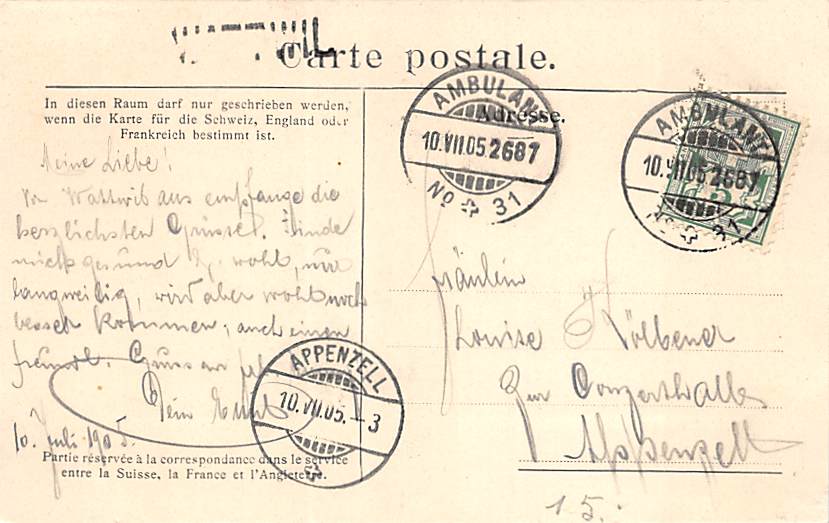 Carte postale.
In diesen Raum darf nur geschrieben werden,
wenn die Karte für die Schweiz, England oder
Frankreich bestimmt ist.
Adresse.
AMBULANT
10.VII.05.2687
No 31
AMBULANT
10.VII.05.2687
No 31
5
Meine Liebe!
Von Wattwil aus empfange die
herzlichsten Grüsse. Finde
mich gesund & wohl, nur
langweilig, wird aber wohl noch
besser kommen, auch einen
freundl. Gruss an
Dein
10. Juli 1905.
Fräulein
Louise Kölbener
Zur Conzerthalle
Appenzell
APPENZELL
10.VII.05.-3
Partie réservée à la correspondance dans le service
entre la Suisse, la France et l'Angleterre.
15.